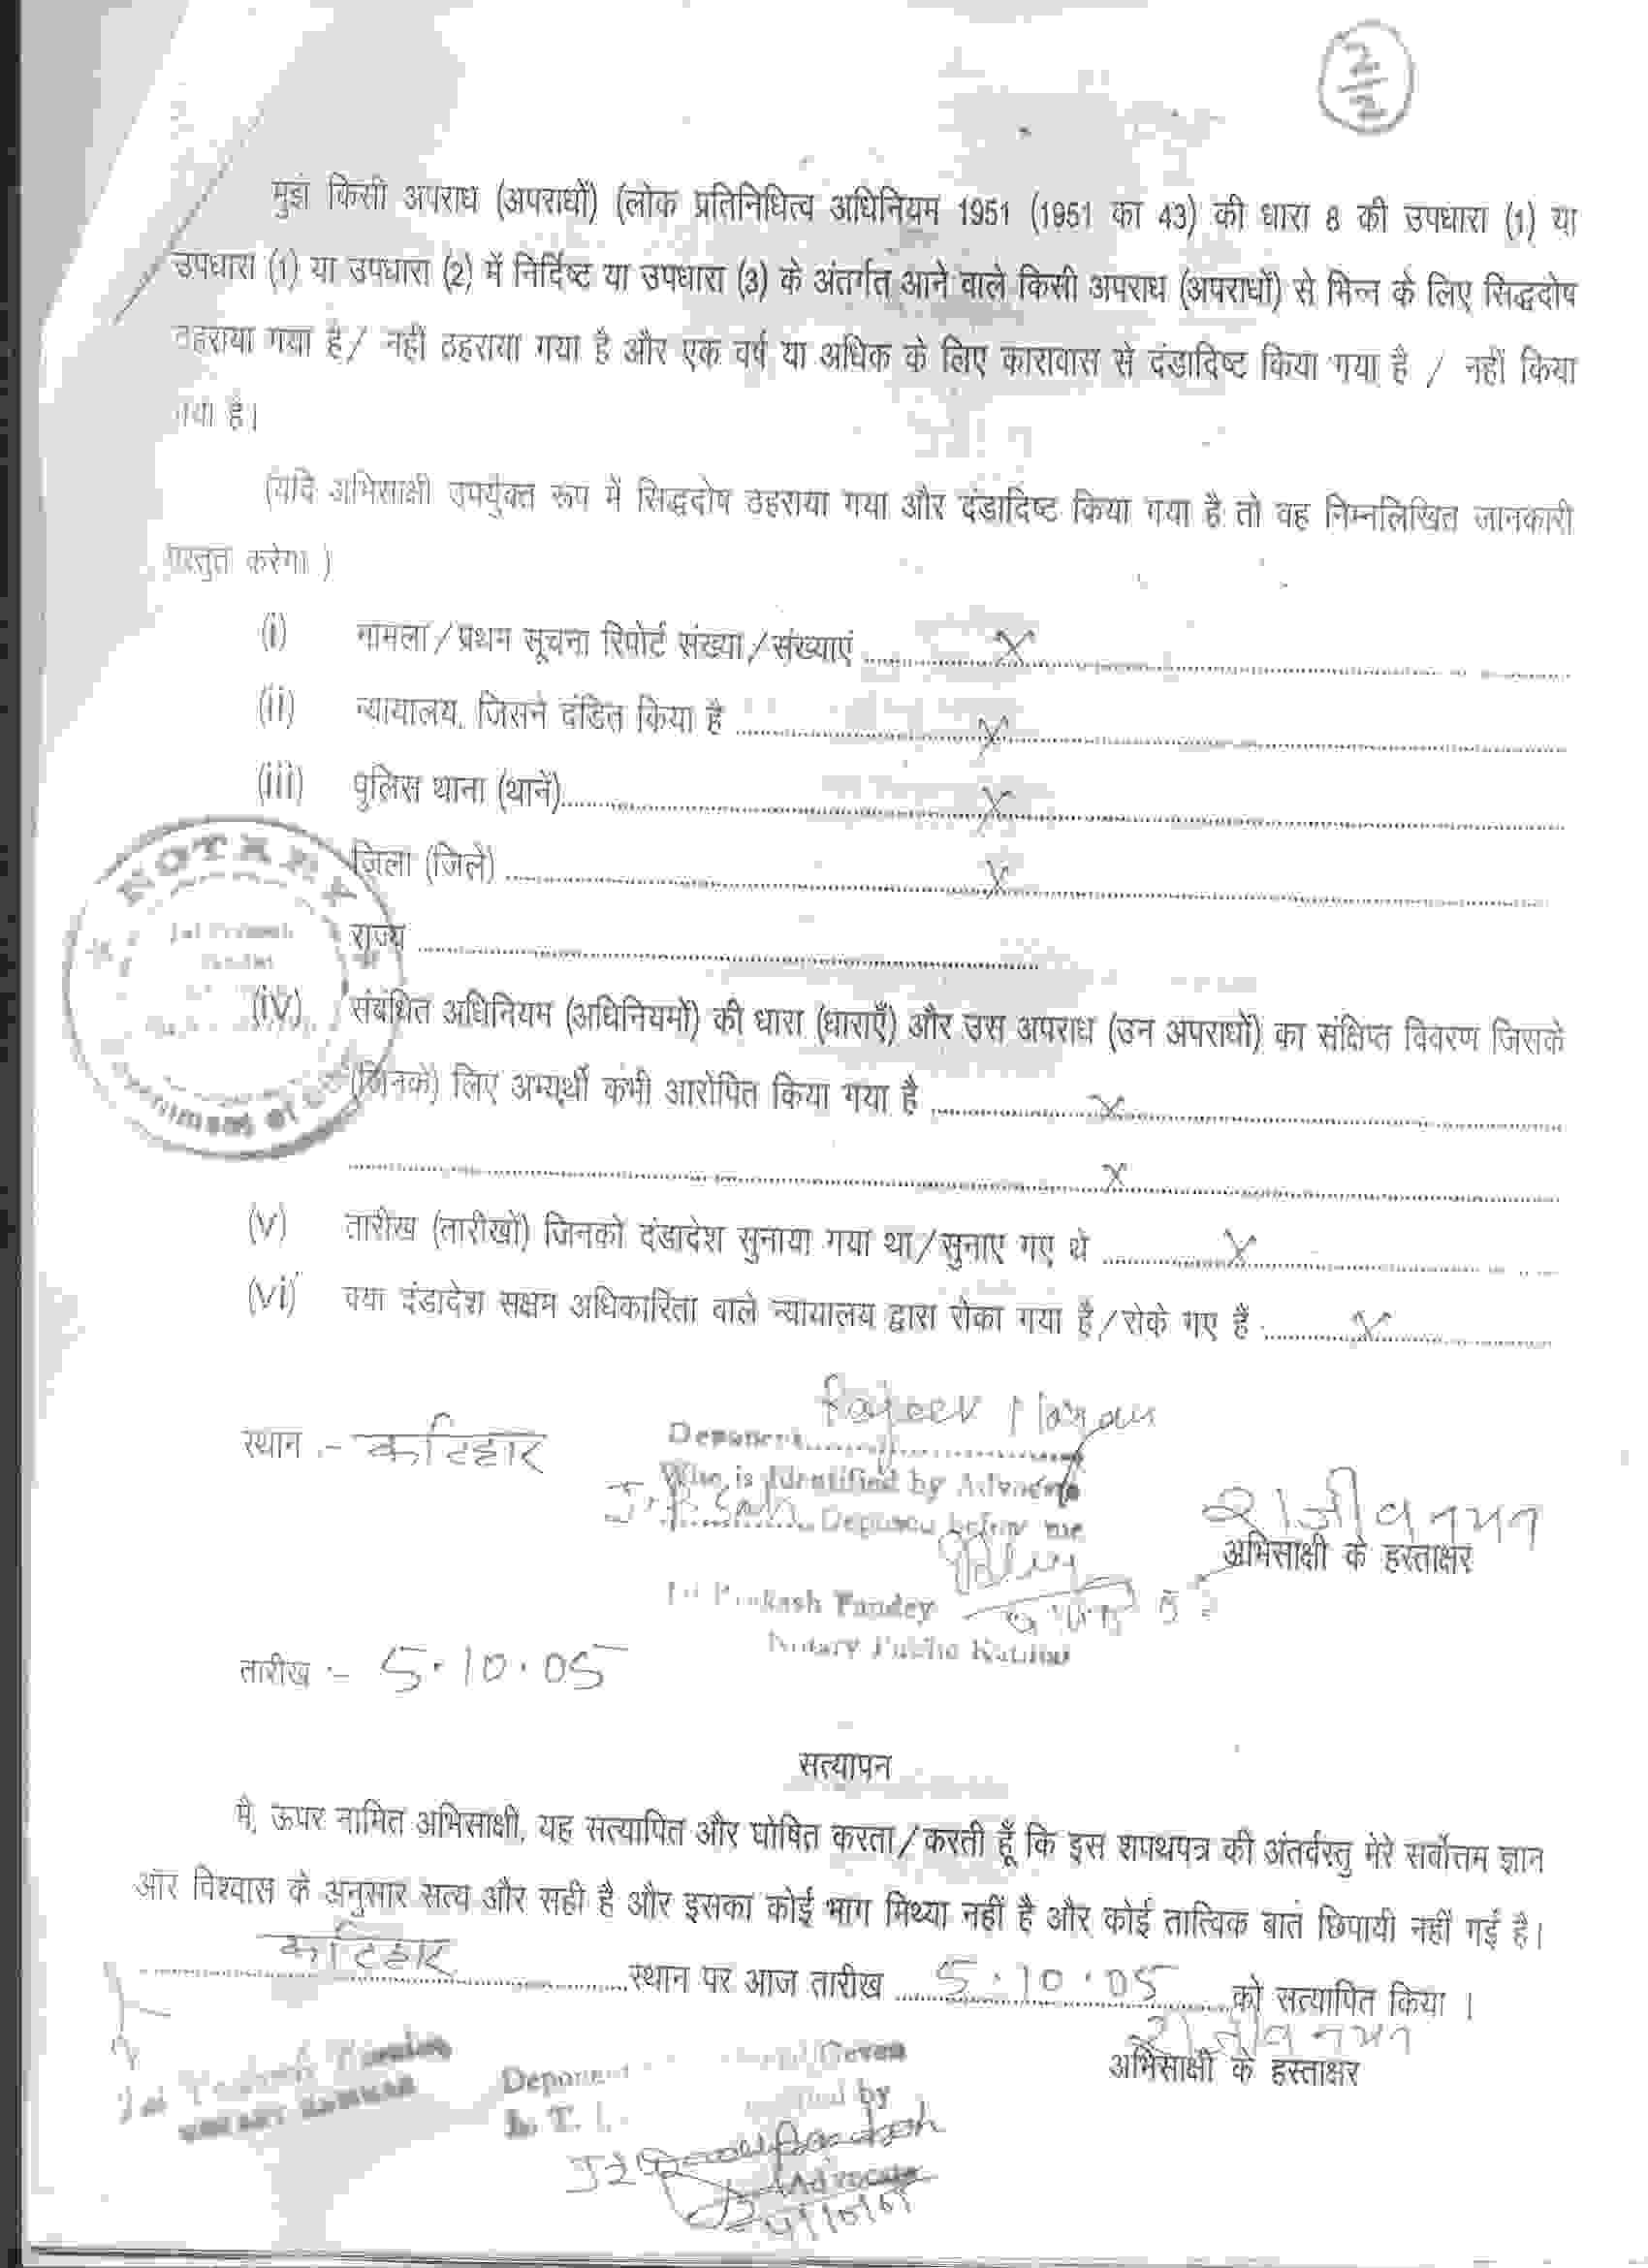 2/2
मुझे किसी अपराध (अपराधों) (लोक प्रतिनिधित्व अधिनियम 1951 (1951 का 43) की धारा 8 की उपधारा (1) या
उपधारा (1) या उपधारा (2) में निर्दिष्ट या उपधारा (3) के अंतर्गत आने वाले किसी अपराध (अपराधों) से भिन्न के लिए सिद्धदोष
ठहराया गया है/ नहीं ठहराया गया है और एक वर्ष या अधिक के लिए कारावास से दंडादिष्ट किया गया है / नहीं किया
गया है।
(यदि अभिसाक्षी उपर्युक्त रूप में सिद्धदोष ठहराया गया और दंडादिष्ट किया गया है तो वह निम्नलिखित जानकारी
प्रस्तुत करेगा )
(i) मामला/प्रथम सूचना रिपोर्ट संख्या/संख्याएं .......... X
(ii) न्यायालय, जिसने दंडित किया है .......... X
(iii) पुलिस थाना (थानें).......... X
जिला (जिले) .......... X
राज्य ..........
(iv) संबंधित अधिनियम (अधिनियमों) की धारा (धाराएँ) और उस अपराध (उन अपराधों) का संक्षिप्त विवरण जिसके
(जिनके) लिए अभ्यर्थी कभी आरोपित किया गया है .......... X
.......... X
(v) तारीख (तारीखों) जिनको दंडादेश सुनाया गया था/सुनाए गए थे .......... X
(vi) क्या दंडादेश सक्षम अधिकारिता वाले न्यायालय द्वारा रोका गया है/रोके गए हैं .......... X
NOTARY
स्थान :- कटिहार
Deponent.......... Rajeev Nayan
Who is Identified by Advocate
J. P. Sah Deposed before me
राजीव नयन
अभिसाक्षी के हस्ताक्षर
Jai Prakash Pandey
Notary Public Katihar
तारीख :- 5.10.05
सत्यापन
मैं, ऊपर नामित अभिसाक्षी, यह सत्यापित और घोषित करता/करती हूँ कि इस शपथपत्र की अंतर्वस्तु मेरे सर्वोत्तम ज्ञान
और विश्वास के अनुसार सत्य और सही है और इसका कोई भाग मिथ्या नहीं है और कोई तात्विक बात छिपायी नहीं गई है।
कटिहार ..........स्थान पर आज तारीख 5.10.05 को सत्यापित किया ।
राजीव नयन
अभिसाक्षी के हस्ताक्षर
Jai Prakash Pandey
Deponent
Given
by
L. T. I.
Advocate